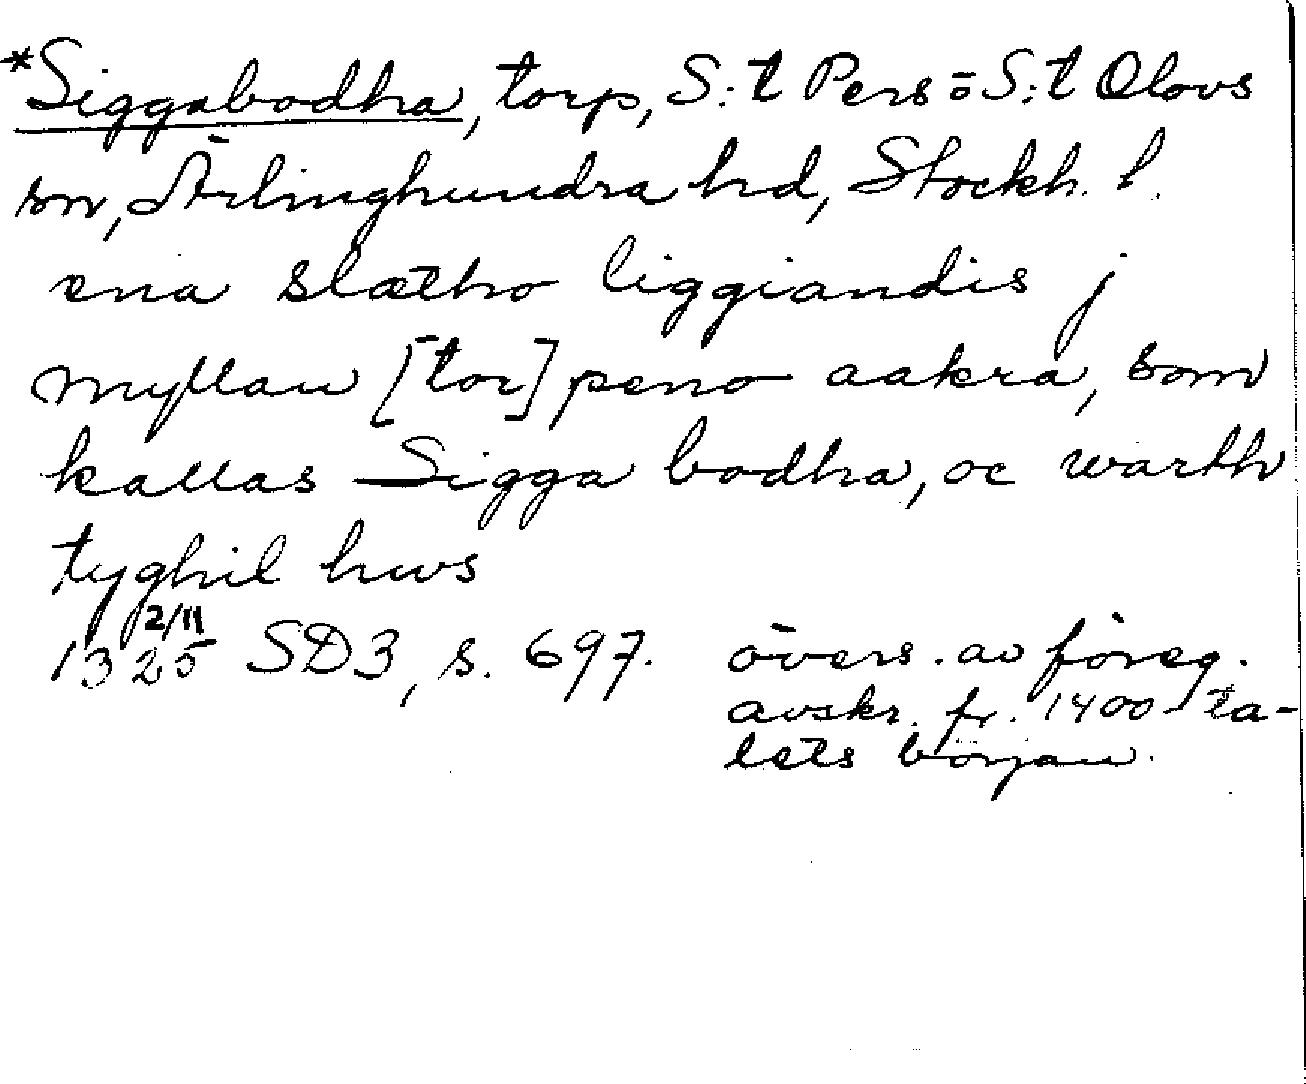 *Siggabodha, torp, S:t Pers = S:t Olovs
sn, Ärlinghundra hd, Stockh. l.
ena slætho liggiandis j
myllau [tor]peno aakra, som
kallas Sigga bodha, oc warth
tyghil hws
2/11
1325 SD3, s. 697. övers. av föreg.
avskr. fr. 1400-ta-
lets början.